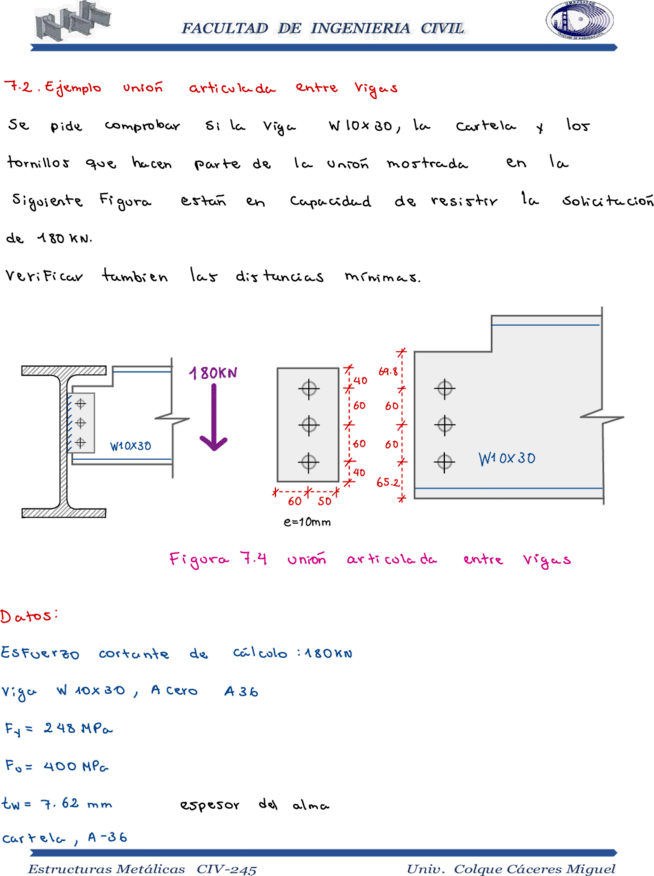 FACULTAD DE INGENIERIA CIVIL
7.2. Ejemplo unión articulada entre vigas
Se pide comprobar si la viga W10x30, la cartela y los
tornillos que hacen parte de la unión mostrada en la
siguiente Figura están en capacidad de resistir la solicitación
de 180 KN.
Verificar tambien las distancias mínimas.
180KN
W10X30
40
60
60
40
60 50
e=10mm
69.8
60
60
65.2
W10X30
Figura 7.4 unión articulada entre vigas
Datos:
Esfuerzo cortante de cálculo : 180KN
Viga W 10x30, Acero A36
Fy = 248 MPa
Fu = 400 MPa
tw = 7.62 mm espesor del alma
cartela, A-36
Estructuras Metálicas CIV-245
Univ. Colque Cáceres Miguel